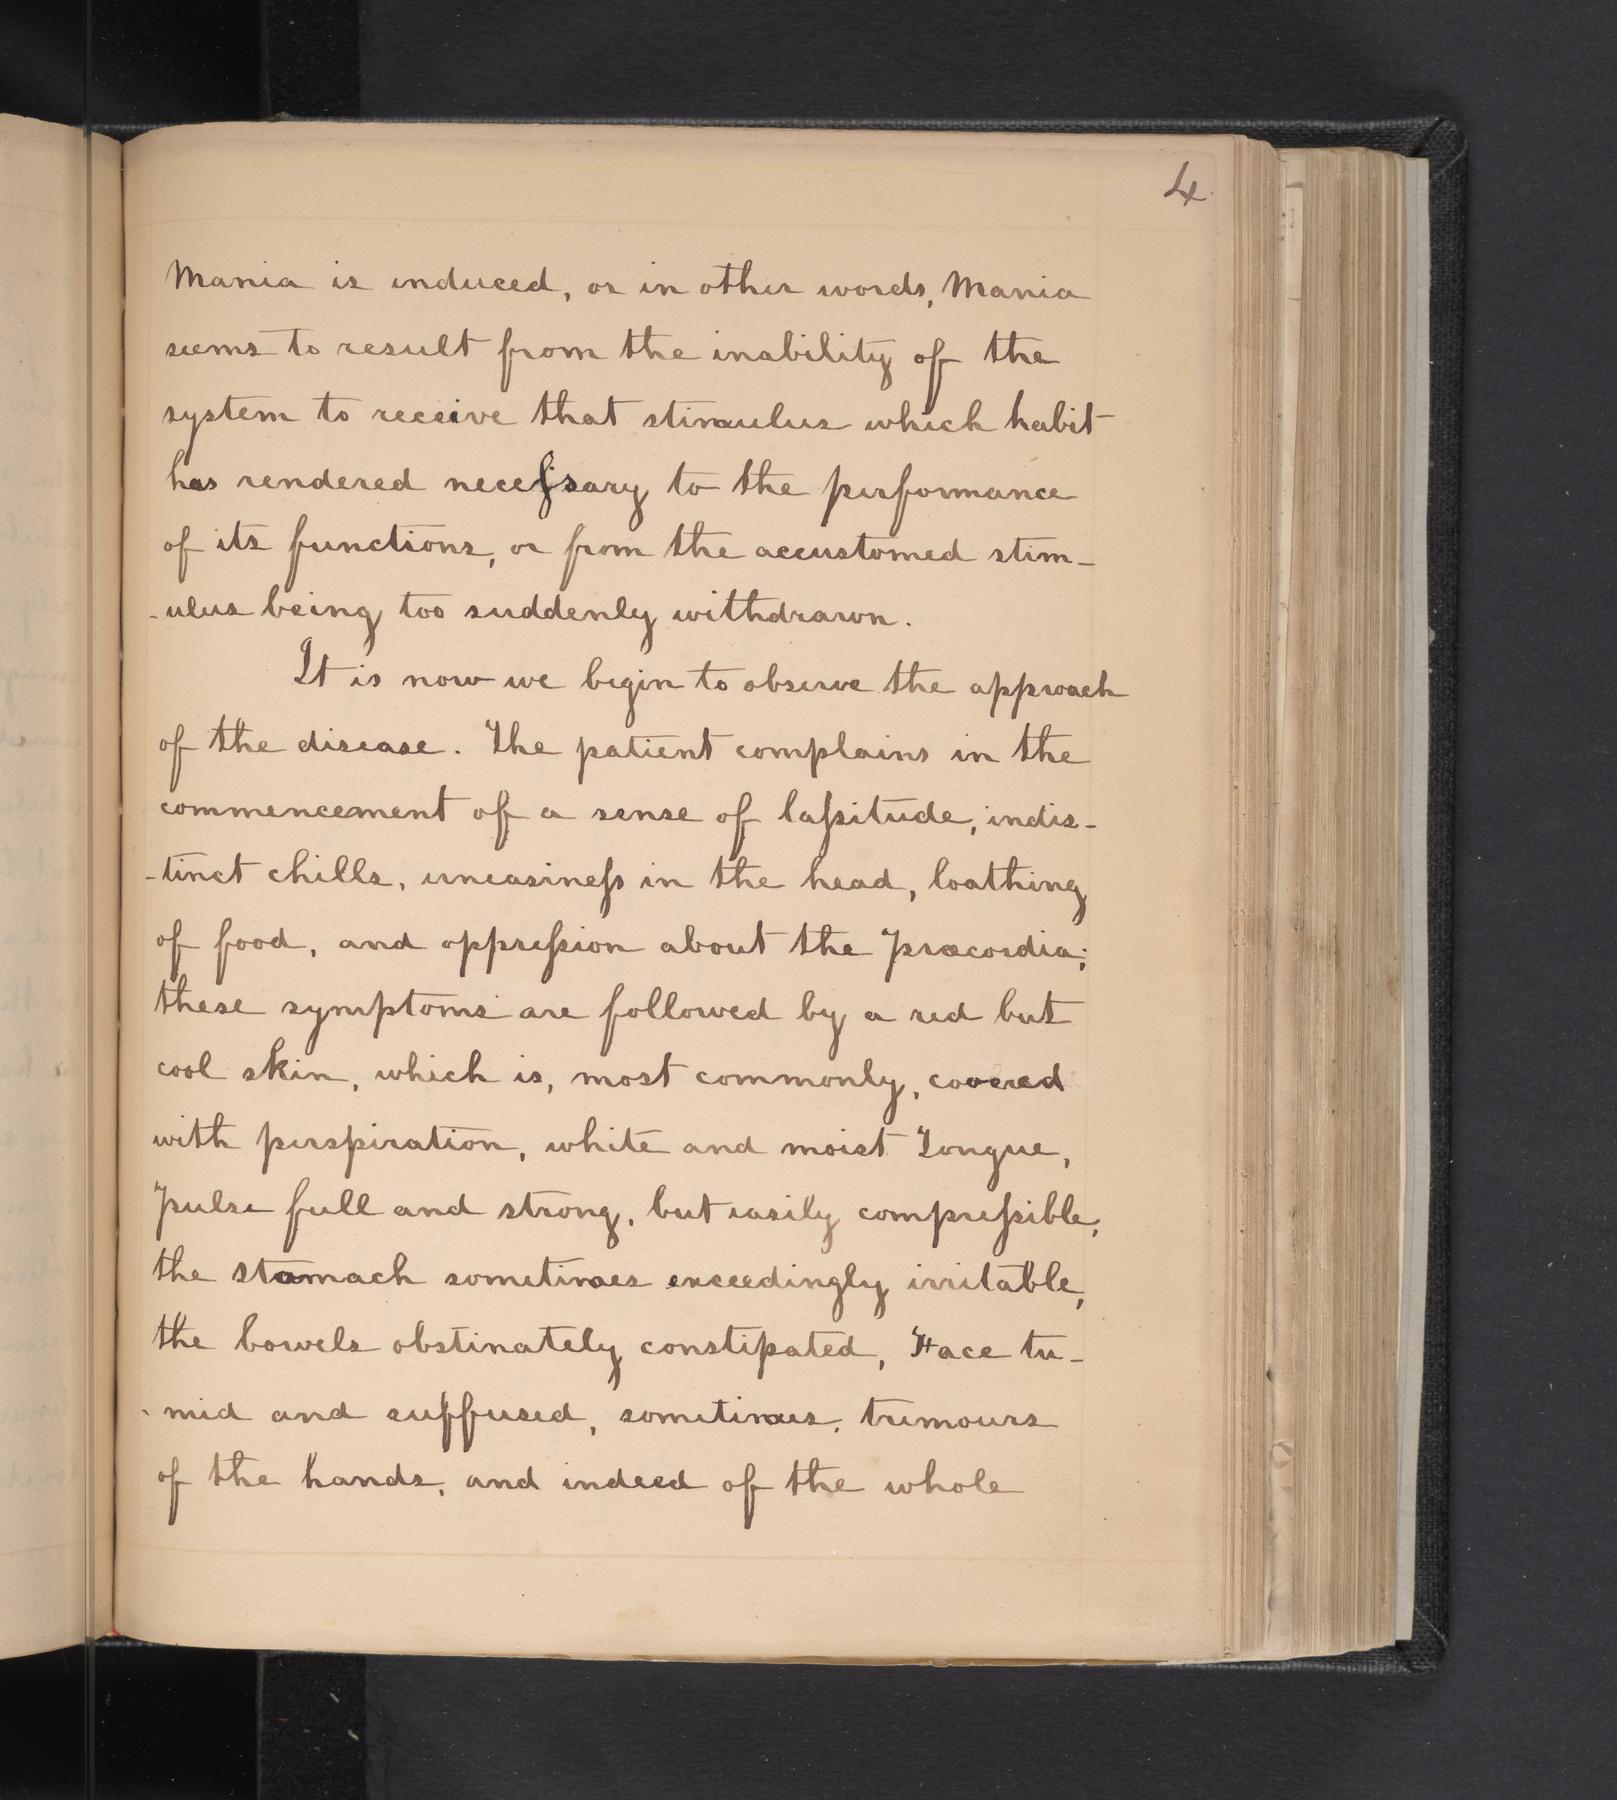 4
Mania is induced, or in other words, Mania
seems to result from the inability of the
system to receive that stimulus which habit
has rendered neceſsary to the performance
of its functions, or from the accustomed stim-
-ulus being too suddenly withdrawn.
It is now we begin to observe the approach
of the disease. The patient complains in the
commencement of a sense of laſsitude, indis-
-tinct chills, uneasineſs in the head, loathing
of food, and oppreſsion about the Præcordia;
these symptoms are followed by a red but
cool skin, which is, most commonly, covered
with perspiration, white and moist Tongue,
Pulse full and strong, but easily compreſsible,
the stomach sometimes exceedingly irritable,
the bowels obstinately constipated, Face tu-
-mid and suffused, sometimes, tumours
of the hands, and indeed of the whole